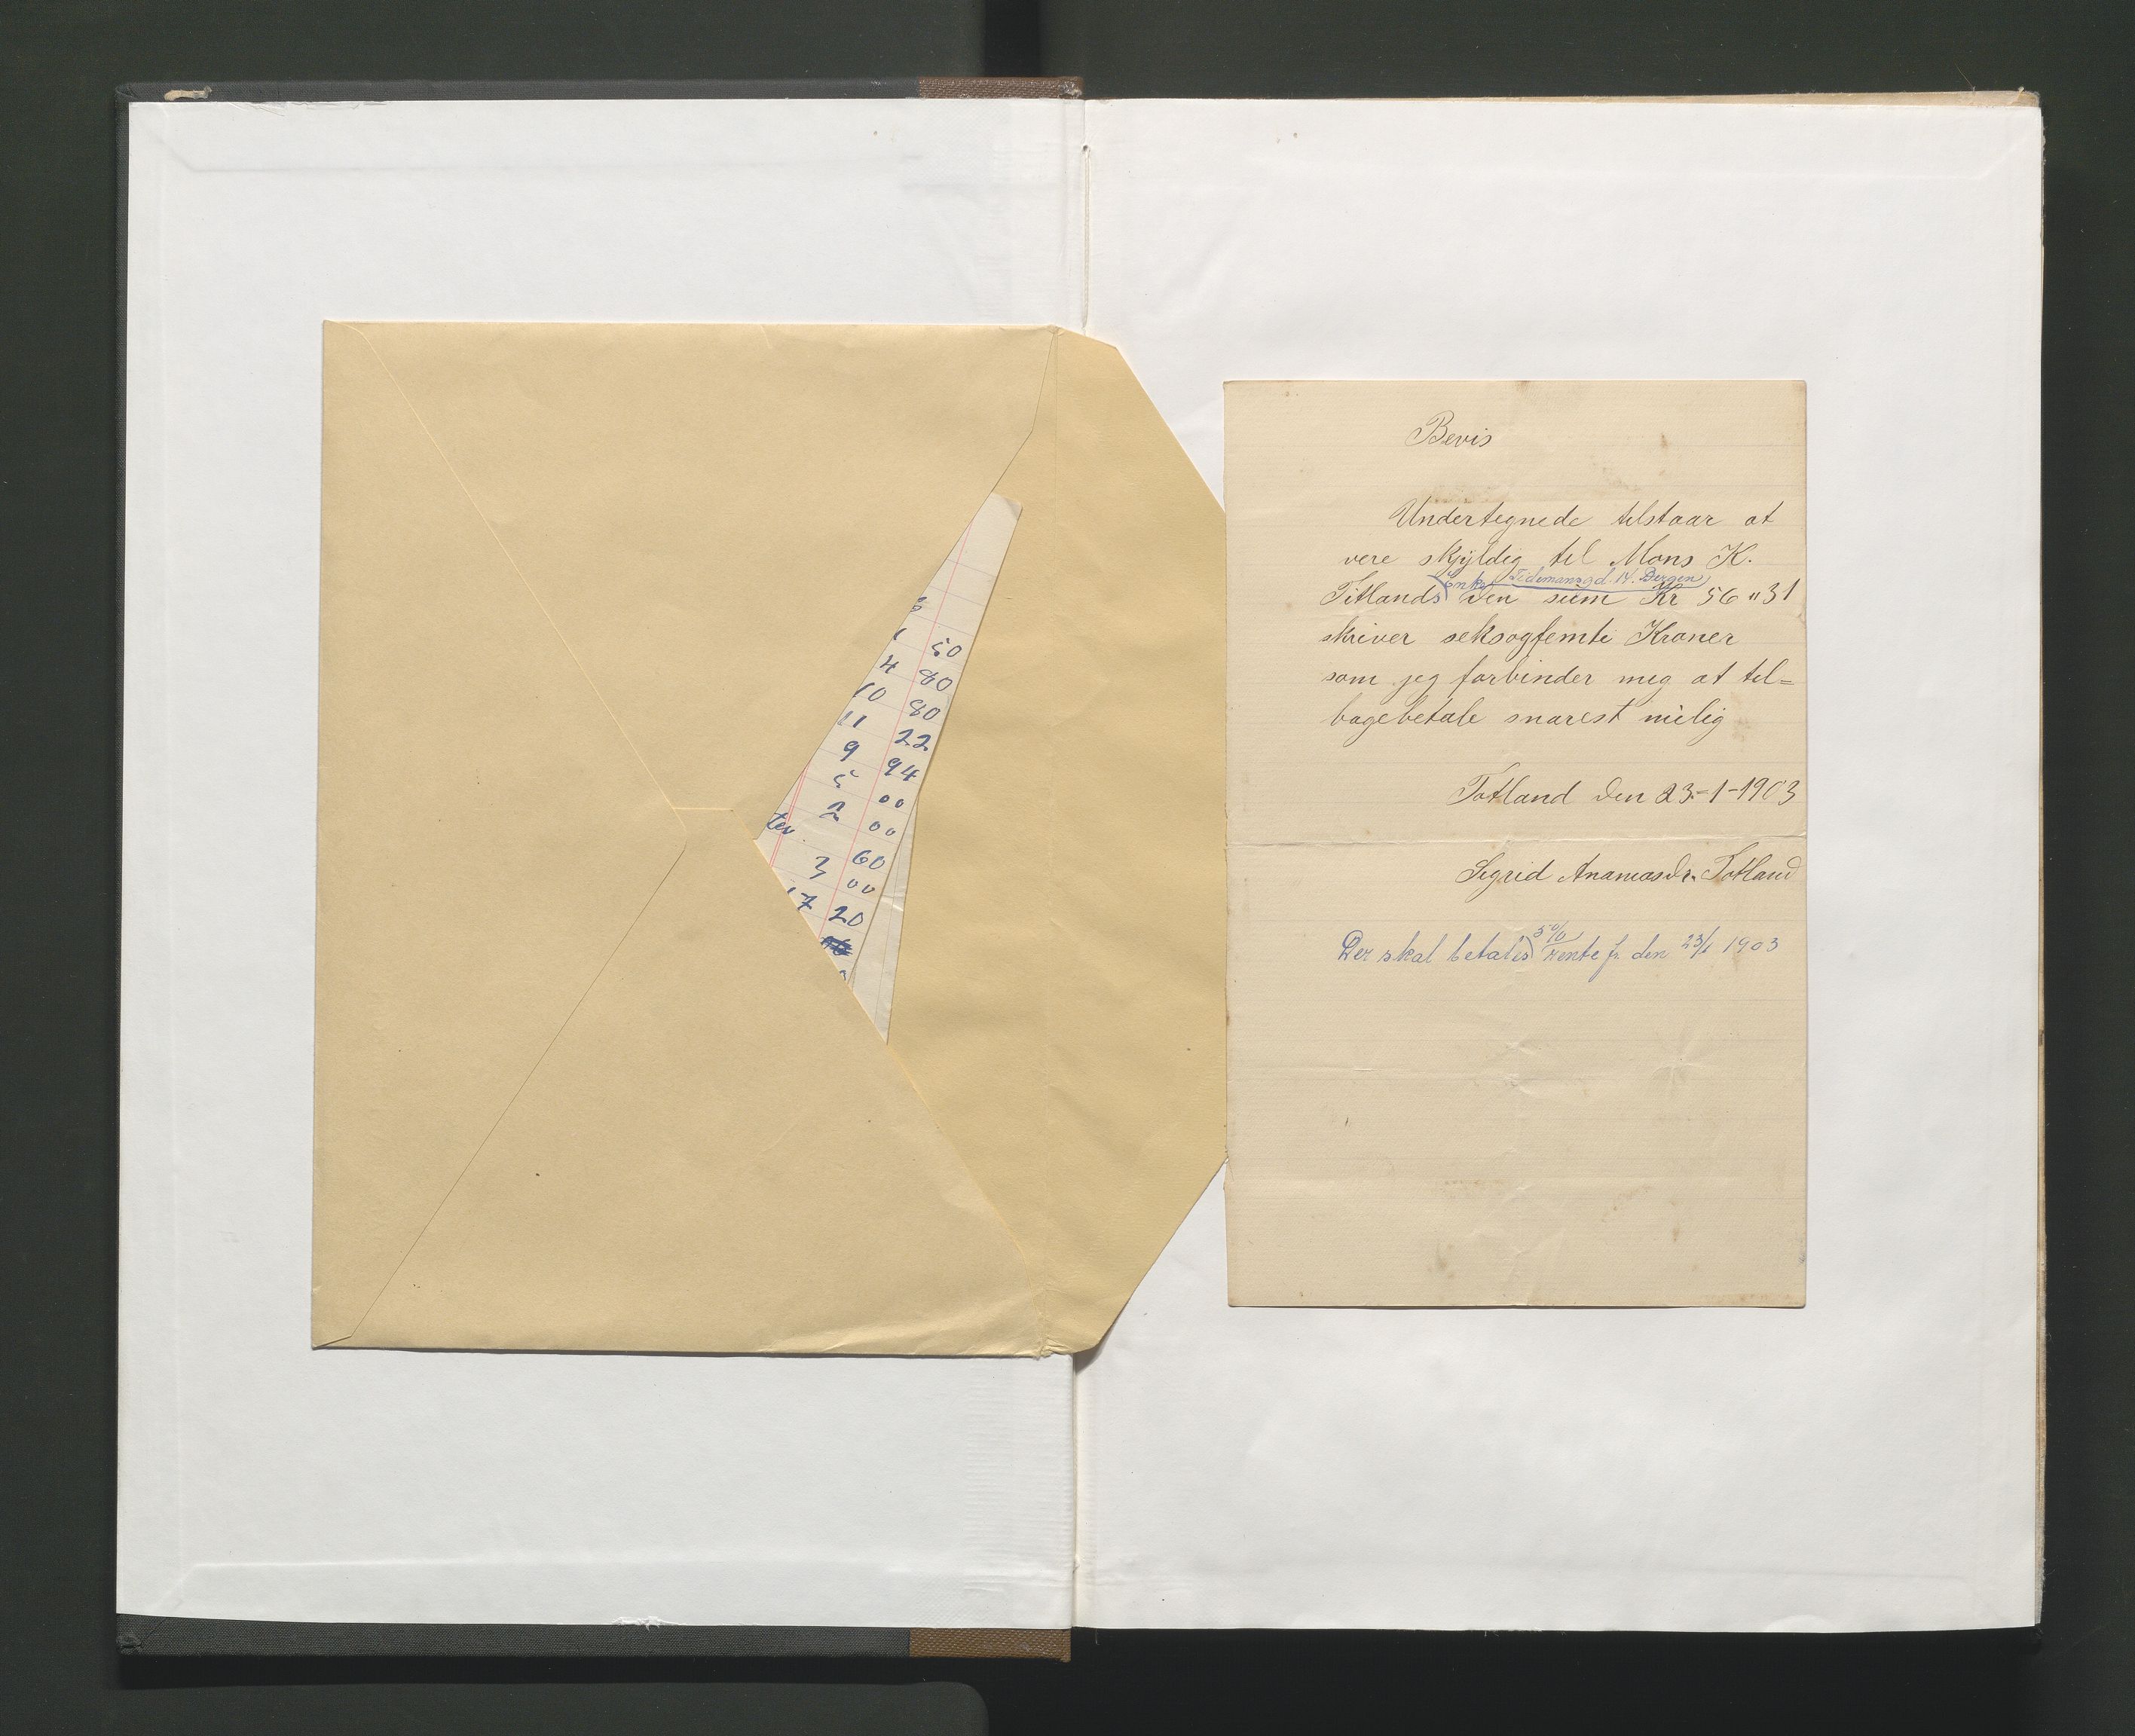 50
4 80
10 80
11 22
9 94
5 00
2 00
ter
60
3 00
17 20
Bevis
Undertegnede tilstaar at
vere skyldig til Mons K.
Enke Tidemansgd. 14. Bergen
Titlands den sum Kr 56 " 31
skriver seksogfemti Kroner
som jeg forbinder mig at til=
bagebetale snarest mulig
Totland den 23-1-1903
Sigrid Ananiasdr. Totland
5%
Der skal betales Rente fr. den 23/1 1903